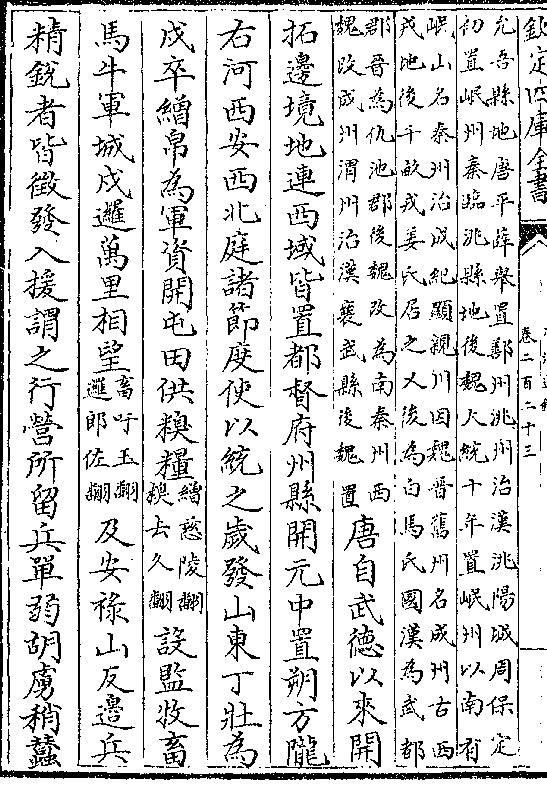 欽定四庫全書
卷二百二十三
允吾縣地唐平薛舉置鄯州洮州治漢洮陽城周保定
初置岷州秦臨洮縣地後魏大統十年置岷州以南有
岷山名秦州治成紀顯親川因魏晉舊州名成州古西
戎地後千畝戎姜氏居之又後為白馬氐國漢為武都
郡晉為仇池郡後魏改為南秦州西
魏改成州渭州治漢襄武縣後魏置
唐自武德以來開
拓邊境地連西域皆置都督府州縣開元中置朔方隴
右河西安西北庭諸節度使以統之歲發山東丁壯為
戍卒繒帛為軍資開屯田供糗糧繒慈陵翻糗去久翻設監牧畜
馬牛軍城戍邏萬里相望畜吁玉翻邏郎佐翻及安祿山反邊兵
精銳者皆徵發入援謂之行營所留兵單弱胡虜稍蠶